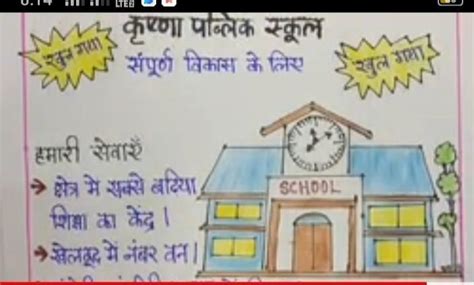 कृष्णा पब्लिक स्कूल
खुल गया
संपूर्ण विकास के लिए
खुल गया
हमारी सेवाएँ
→ क्षेत्र में सबसे बढिया
शिक्षा का केंद्र।
→ खेलकूद में नंबर वन।
SCHOOL